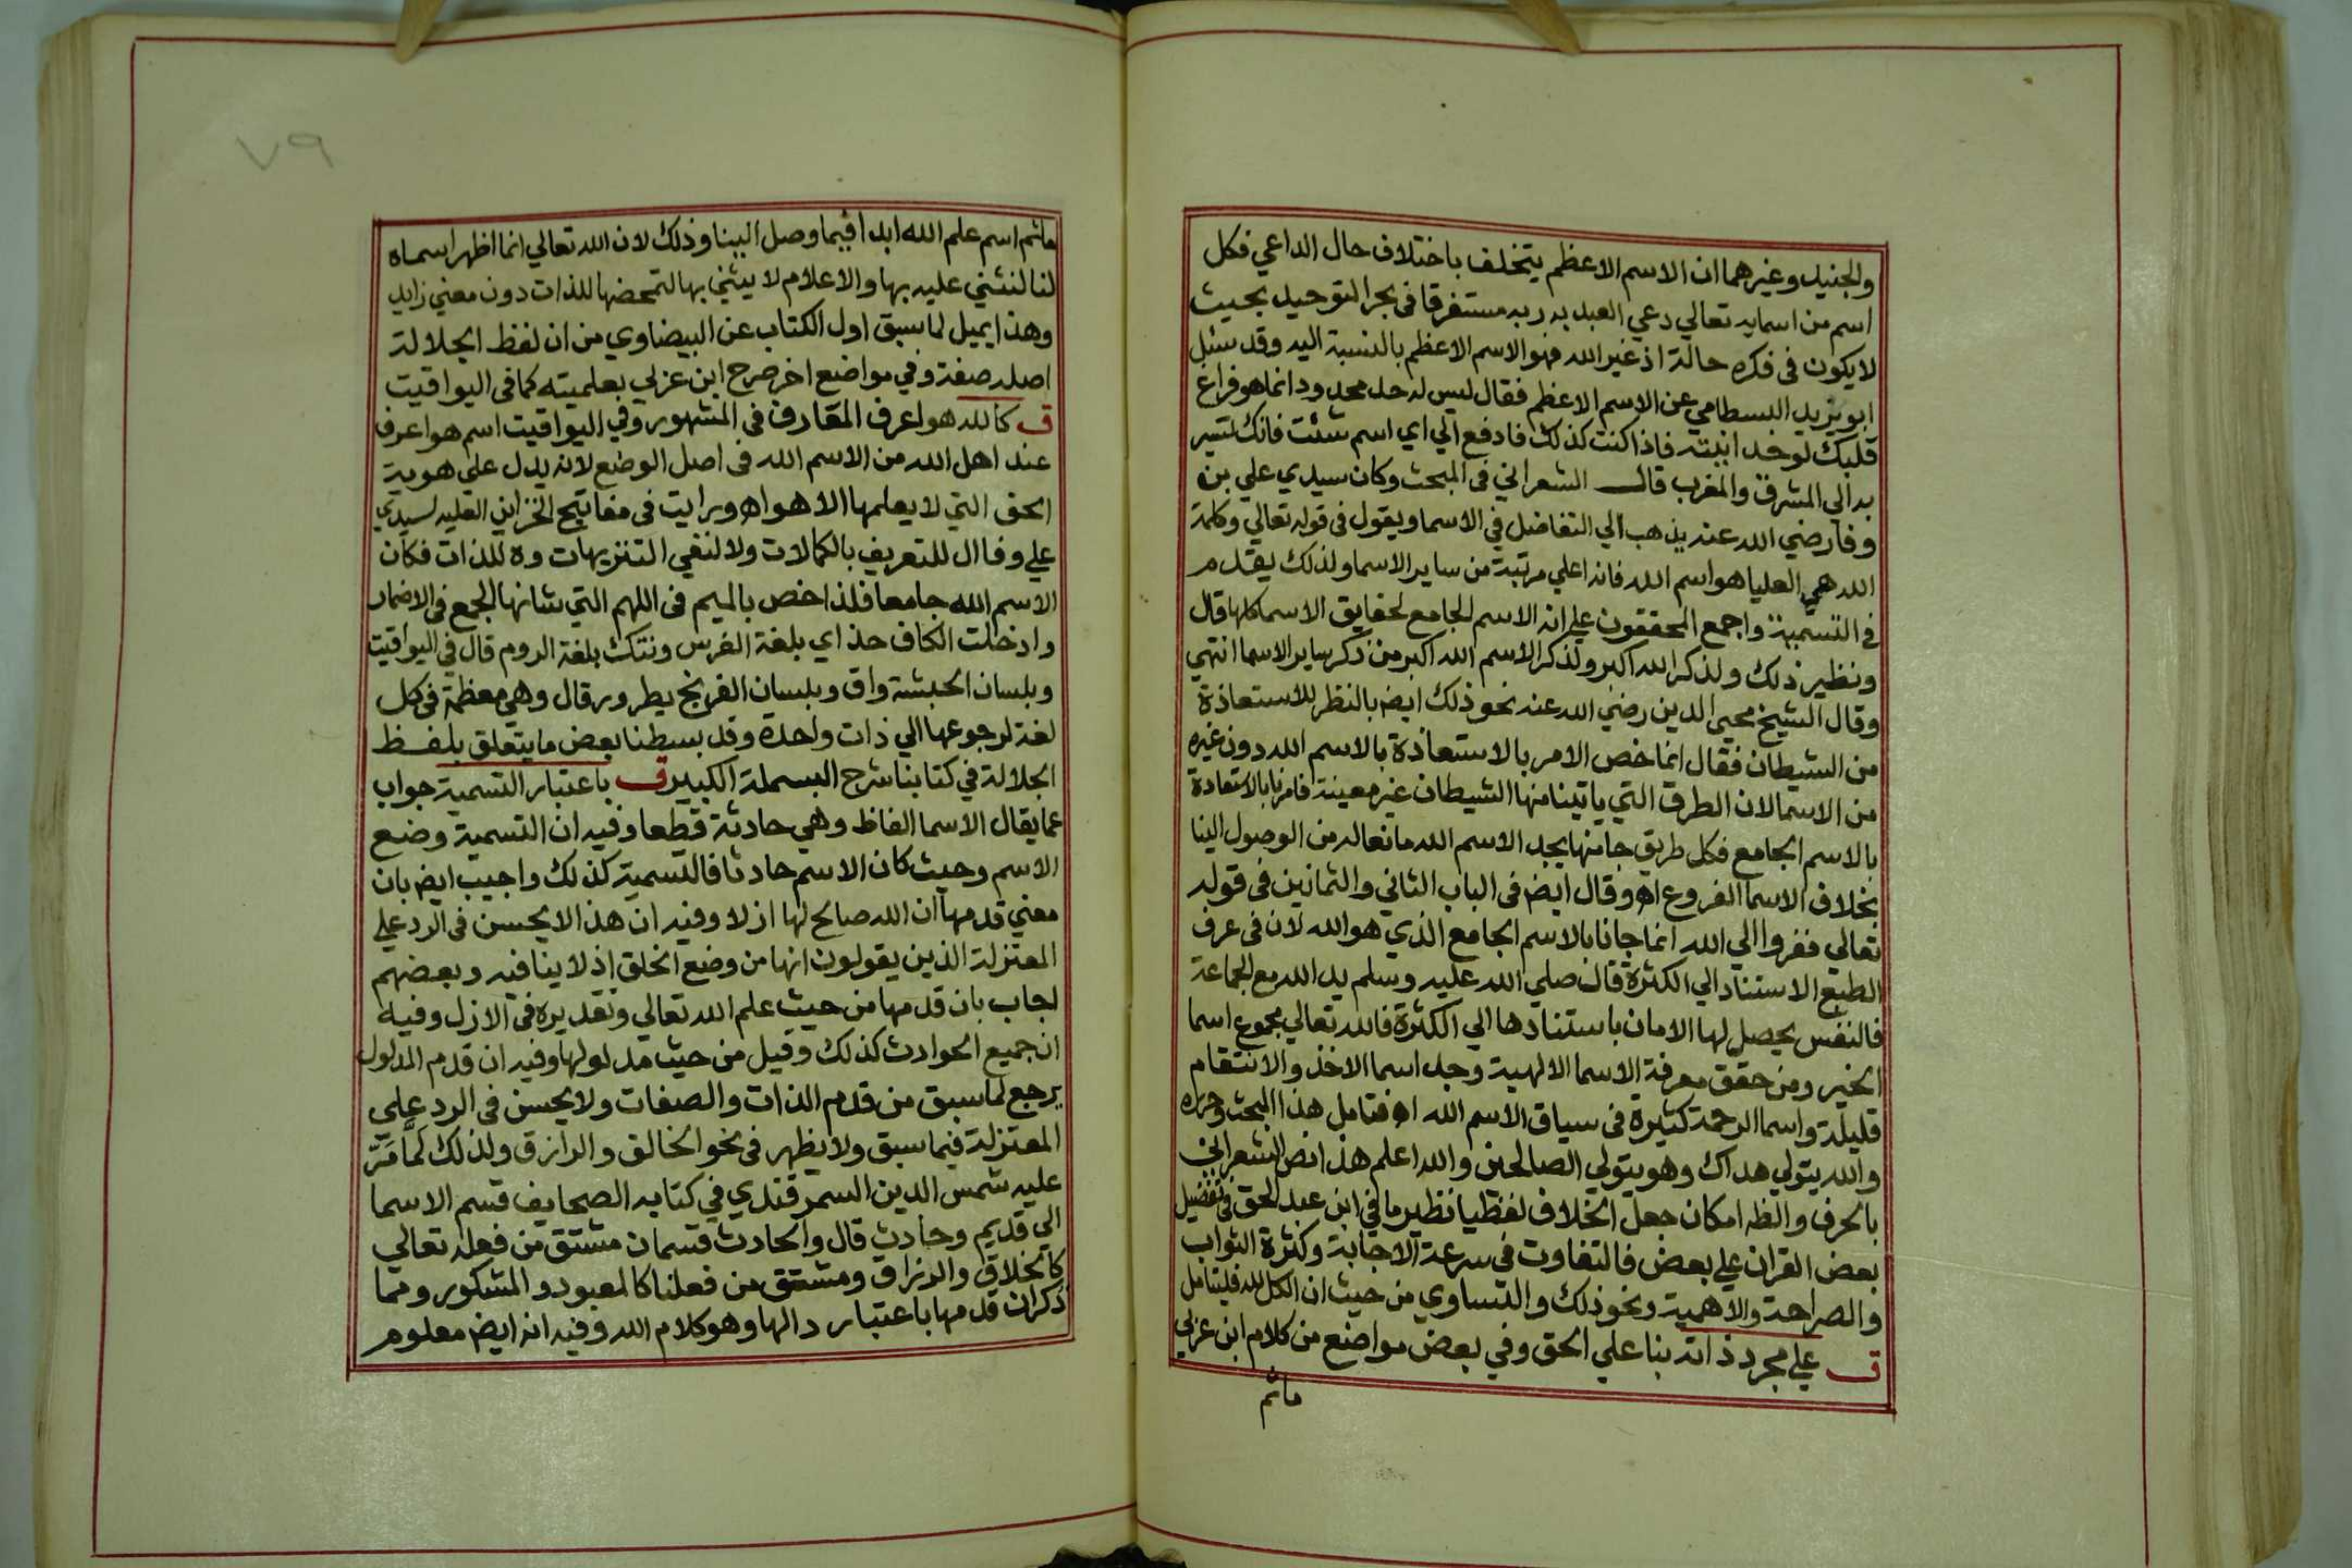 والجنيد وغيرهما ان الاسم الاعظم يتخلف باختلاف حال الداعي فكل
اسم من اسمايه تعالي دعي العبد به ربه مستغرقا فى بحر التوحيد بحيث
لا يكون فى فكره حالة اذ غير الله فهو الاسم الاعظم بالنسبة اليه وقد سئل
ابو يزيد البسطامي عن الاسم الاعظم فقال ليس له حد محدود انما هو فراغ
قلبك لوحدانيته فاذا كنت كذلك فادفع الي اي اسم شئت فانك تسير
به الي المشرق والمغرب قال الشعراني فى المبحث وكان سيدي علي بن
وفا رضي الله عنه يذهب الي التفاضل في الاسما ويقول فى قوله تعالي وكلمة
الله هي العليا هو اسم الله فانه اعلي مرتبة من ساير الاسما ولذلك يقدم
في التسمية واجمع المحققون علي انه الاسم الجامع لحقايق الاسما كلها قال
ونظير ذلك ولذكر الله اكبر ولذكر الاسم الله اكبر من ذكر ساير الاسما انتهي
وقال الشيخ محيي الدين رضي الله عنه نحو ذلك ايض بالنظر للاستعاذة
من الشيطان فقال انما خص الامر بالاستعاذة بالاسم الله دون غيره
من الاسما لان الطرق التي ياتينا منها الشيطان غير معينة فامرنا بالاستعاذة
بالاسم الجامع فكل طريق جا منها يجد الاسم الله مانعا له من الوصول الينا
بخلاف الاسما الفروع اه وقال ايض فى الباب الثاني والثمانين فى قوله
تعالي ففروا الي الله انما جانا بالاسم الجامع الذي هو الله لان فى عرف
الطبع الاستناد الي الكثرة قال صلي الله عليه وسلم يد الله مع الجماعة
فالنفس يحصل لها الامان باستنادها الي الكثرة فالله تعالي مجموع اسما
الخير ومن حقق معرفة الاسما الالهية وجد اسما الاخذ والانتقام
قليلة واسما الرحمة كثيرة فى سياق الاسم الله اه فتامل هذا المبحث وحرره
والله يتولي هداك وهو يتولي الصالحين والله اعلم هذا نص الشعراني
بالحرف والظه امكان جعل الخلاف لفظيا نظير ما في ابن عبد الحق في تفضيل
بعض القران علي بعض فالتفاوت في سرعة الاجابة وكثرة الثواب
والصراحة والاهمية ونحو ذلك والتساوي من حيث ان الكل لله فليتامل
ق علي مجرد ذاته بنا علي الحق وفي بعض مواضع من كلام ابن عربي
ماثم
٧٩
ماثم اسم علم الله ابدا فيما وصل الينا وذلك لان الله تعالي انما اظهر اسماه
لنا لنثني عليه بها والاعلام لا يثني بها لتمحضها للذات دون معني زايد
وهذا يميل لما سبق اول الكتاب عن البيضاوي من ان لفظ الجلالة
اصله صفة وفي مواضع اخر صرح ابن عربي بعلميته كما فى اليواقيت
ق كالله هو اعرف المعارف فى المشهور وفي اليواقيت اسم هو اعرف
عند اهل الله من الاسم الله فى اصل الوضع لانه يدل علي هوية
الحق التي لا يعلمها الا هو اه ورايت فى مفاتيح الخزاين العليه لسيدي
علي وفا ال للتعريف بالكمالات ولا لنفي التنزيهات وه للذات فكان
الاسم الله جامعا فلذا خص بالميم فى اللهم التي شانها الجمع فى الاضمار
وادخلت الكاف حذاي بلغة الفرس ونتك بلغة الروم قال في اليواقيت
وبلسان الحبشة واق وبلسان الفرنج يطرور قال وهي معظمة فى كل
لغة لرجوعها الي ذات واحدة وقد بسطنا بعض ما يتعلق بلفظ
الجلالة في كتابنا شرح البسملة الكبير ق باعتبار التسمية جواب
عما يقال الاسما الفاظ وهي حادثة قطعا وفيه ان التسمية وضع
الاسم وحيث كان الاسم حادثا فالتسمية كذلك واجيب ايض بان
معني قدمها ان الله صالح لها ازلا وفيه ان هذا لا يحسن فى الرد علي
المعتزلة الذين يقولون انها من وضع الخلق اذ لا ينافيه وبعضهم
اجاب بان قدمها من حيث علم الله تعالي وتقديره فى الازل وفيه
ان جميع الحوادث كذلك وقيل من حيث مدلولها وفيه ان قدم المدلول
يرجع لما سبق من قدم الذات والصفات ولا يحسن فى الرد علي
المعتزلة فيما سبق ولا يظهر فى نحو الخالق والرازق ولذلك لما مر
عليه شمس الدين السمرقندي في كتابه الصحايف قسم الاسما
الي قديم وحادث قال والحادث قسمان مشتق من فعله تعالي
كالخلاق والرزاق ومشتق من فعلنا كالمعبود والمشكور ومما
ذكران قدمها باعتبار دالها وهو كلام الله وفيه انه ايض معلوم